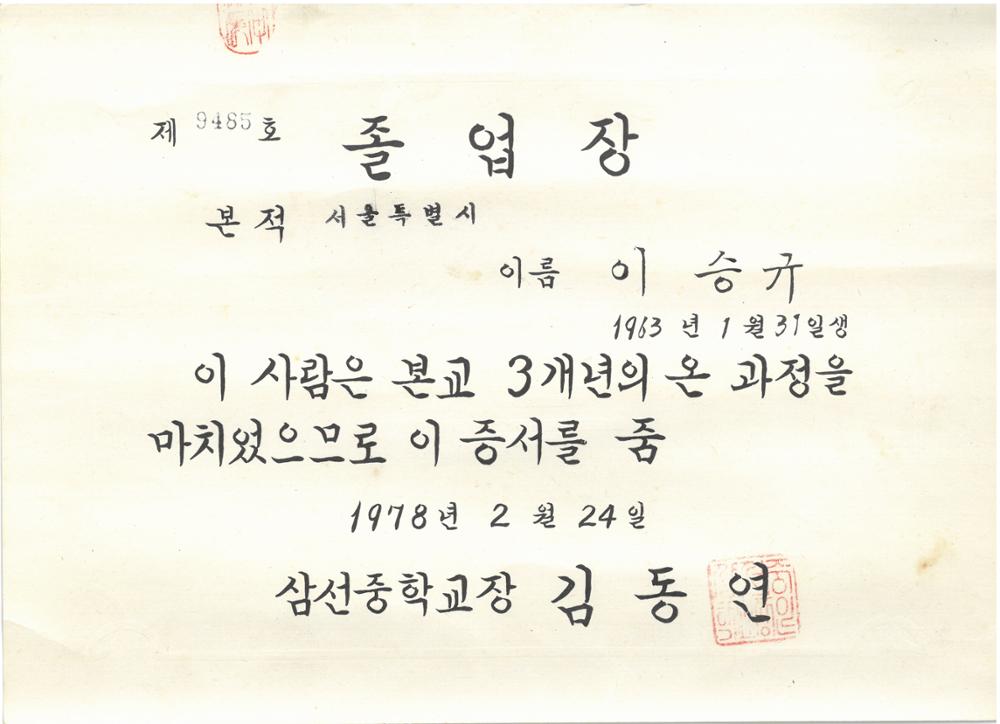 제 9485 호 졸 업 장
본 적 서울특별시
이름 이 승 규
1963 년 1 월 31일생
이 사람은 본교 3개년의 온 과정을
마치었으므로 이 증서를 줌
1978년 2 월 24일
삼선중학교장 김 동 연